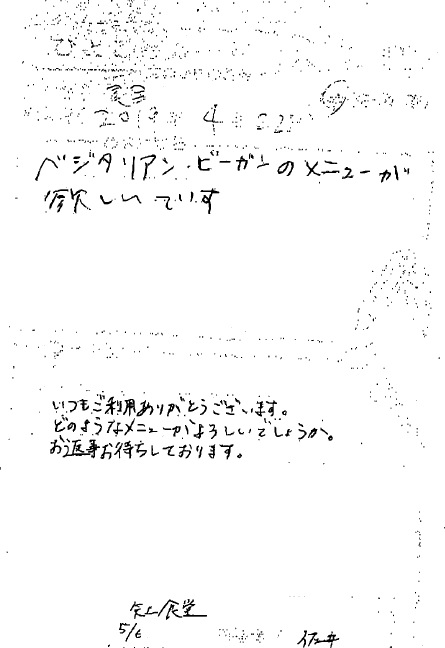 ひとこと
2019年 4月22日
ベジタリアン・ビーガンのメニューが
欲しいでいす
いつもご利用ありがとうございます。
どのようなメニューがよろしいでしょうか。
お返事お待ちしております。
矢上食堂
5/6